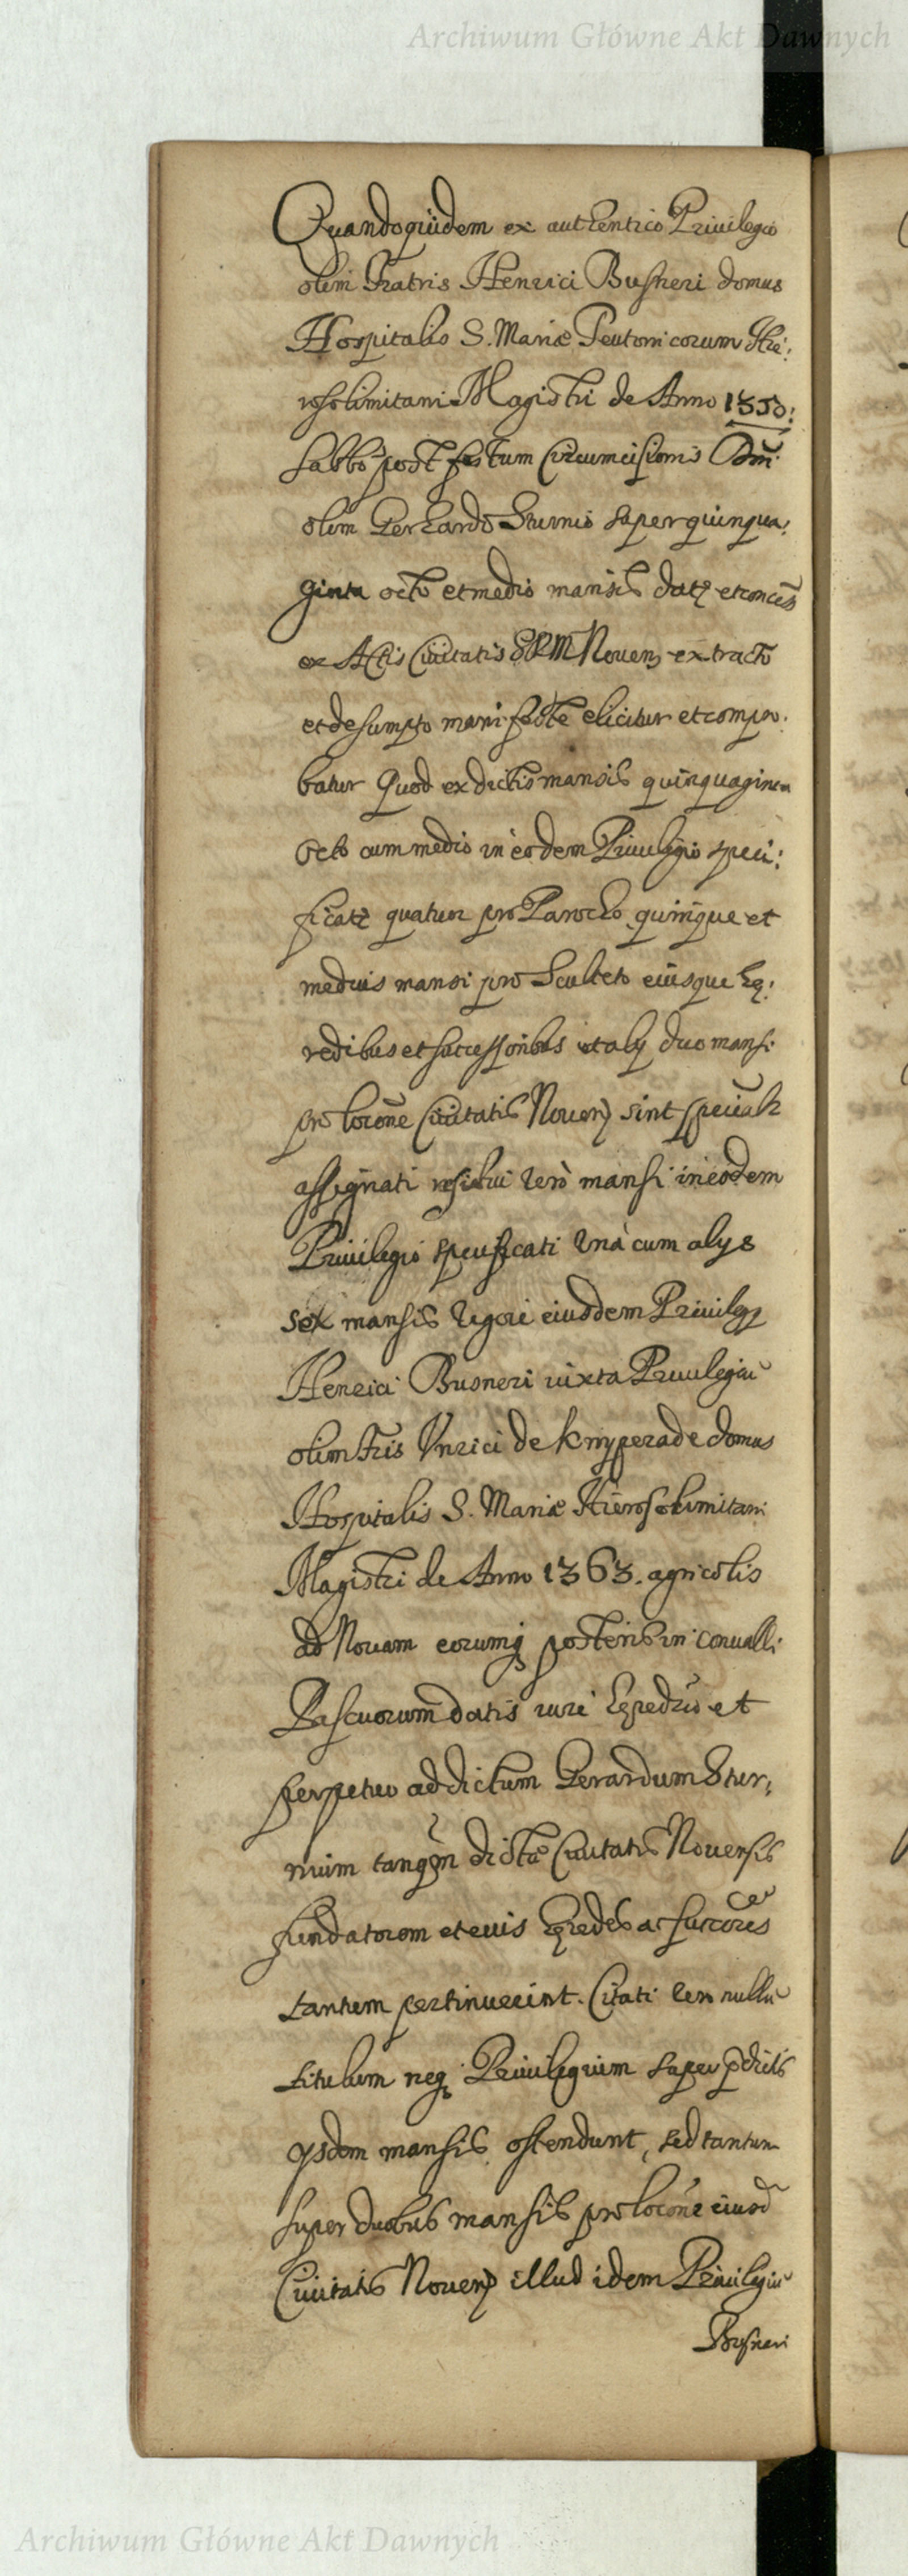 Archiwum Główne Akt Dawnych
Quandoquidem ex authentico Priuilegio
olim Fratris Henrici Busneri domus
Hospitalis S. Mariæ Teutonicorum Hie:
rosolimitani Magistri de Anno 1350:
Sabbo post festum Circumcisionis Dni
olim Gerhardo Sturnio super quinqua:
ginta octo et medio mansis datz et conces
ex Actis Ciuitatis SRM Nouen extracto
et desumpto manifeste elicitur et compro:
batur Quod ex dictis mansis quinquaginta
octo cum medio in eodem Priuilegio speci:
ficatz quatuor pro Parocho quinque et
medius mansi pro Sculteto eiusque hę:
redibus et successoribus et alij duo mansi
pro locone Ciuitatis Nouen sint specialr
assignati residui vero mansi in eodem
Priuilegio specificati vna cum alys
sex mansis vigore eiusdem Priuilegij
Henrici Busneri iuxta Priuilegiu
olim Fris Vnrici de Knyperade domus
Hospitalis S. Mariæ Hierosolimitani
Magistri de Anno 1363. agricolis
ad Nouam eorumq posteris in conualli
Pascuorum datis iure hęredrio et
perpetuo ad dictum Gerardum Stur:
nium tanqm dictæ Ciuitatis Nouensis
fundatorem et eius hęredes ac succores
tantum pertinuerint. Citati vero nullu
titulum neq Priuilegium super pdictis
ysdem mansis ostendunt, sed tantum
super duobus mansis pro locone eiusd
Ciuitatis Nouen illud idem Priuilegiu
Busneri
Archiwum Główne Akt Dawnych